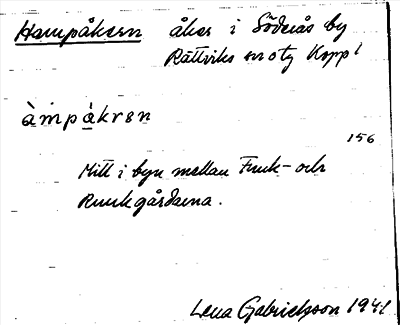 Hampåkern åker i Söderås by
Rättviks sn och Kppl
àmpåkren
156
Mitt i byn mellan Funk- och
Runkgårdarna.
Lena Gabrielsson 1941